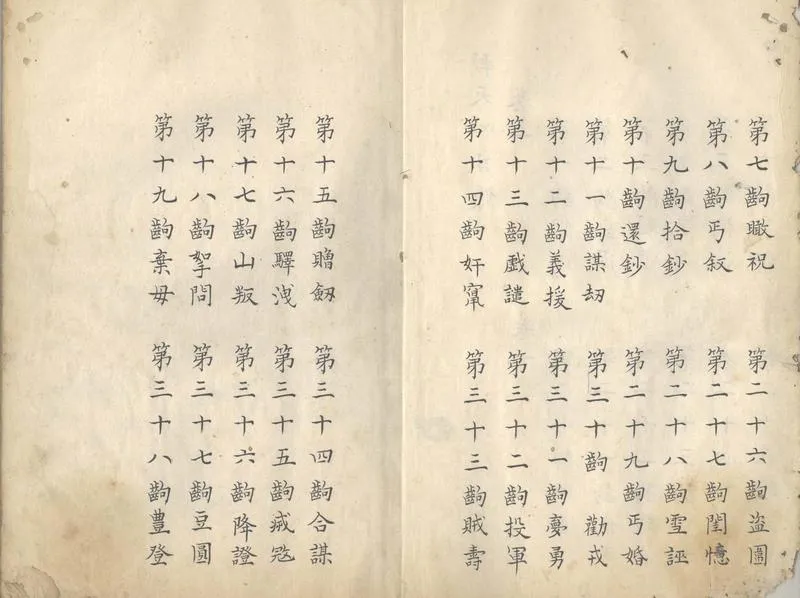 第七齣瞰祝
第八齣丐叙
第九齣拾鈔
第十齣還鈔
第十一齣謀劫
第十二齣義援
第十三齣戯譴
第十四齣奸竄
第十五齣贈劒
第十六齣驛洩
第十七齣山叛
第十八齣拏問
第十九齣棄母
第二十六齣盗圖
第二十七齣閨憶
第二十八齣雪誣
第二十九齣丐婚
第三十齣勸戎
第三十一齣夢勇
第三十二齣投軍
第三十三齣賊壽
第三十四齣合謀
第三十五齣滅寇
第三十六齣降證
第三十七齣豆圓
第三十八齣豊登